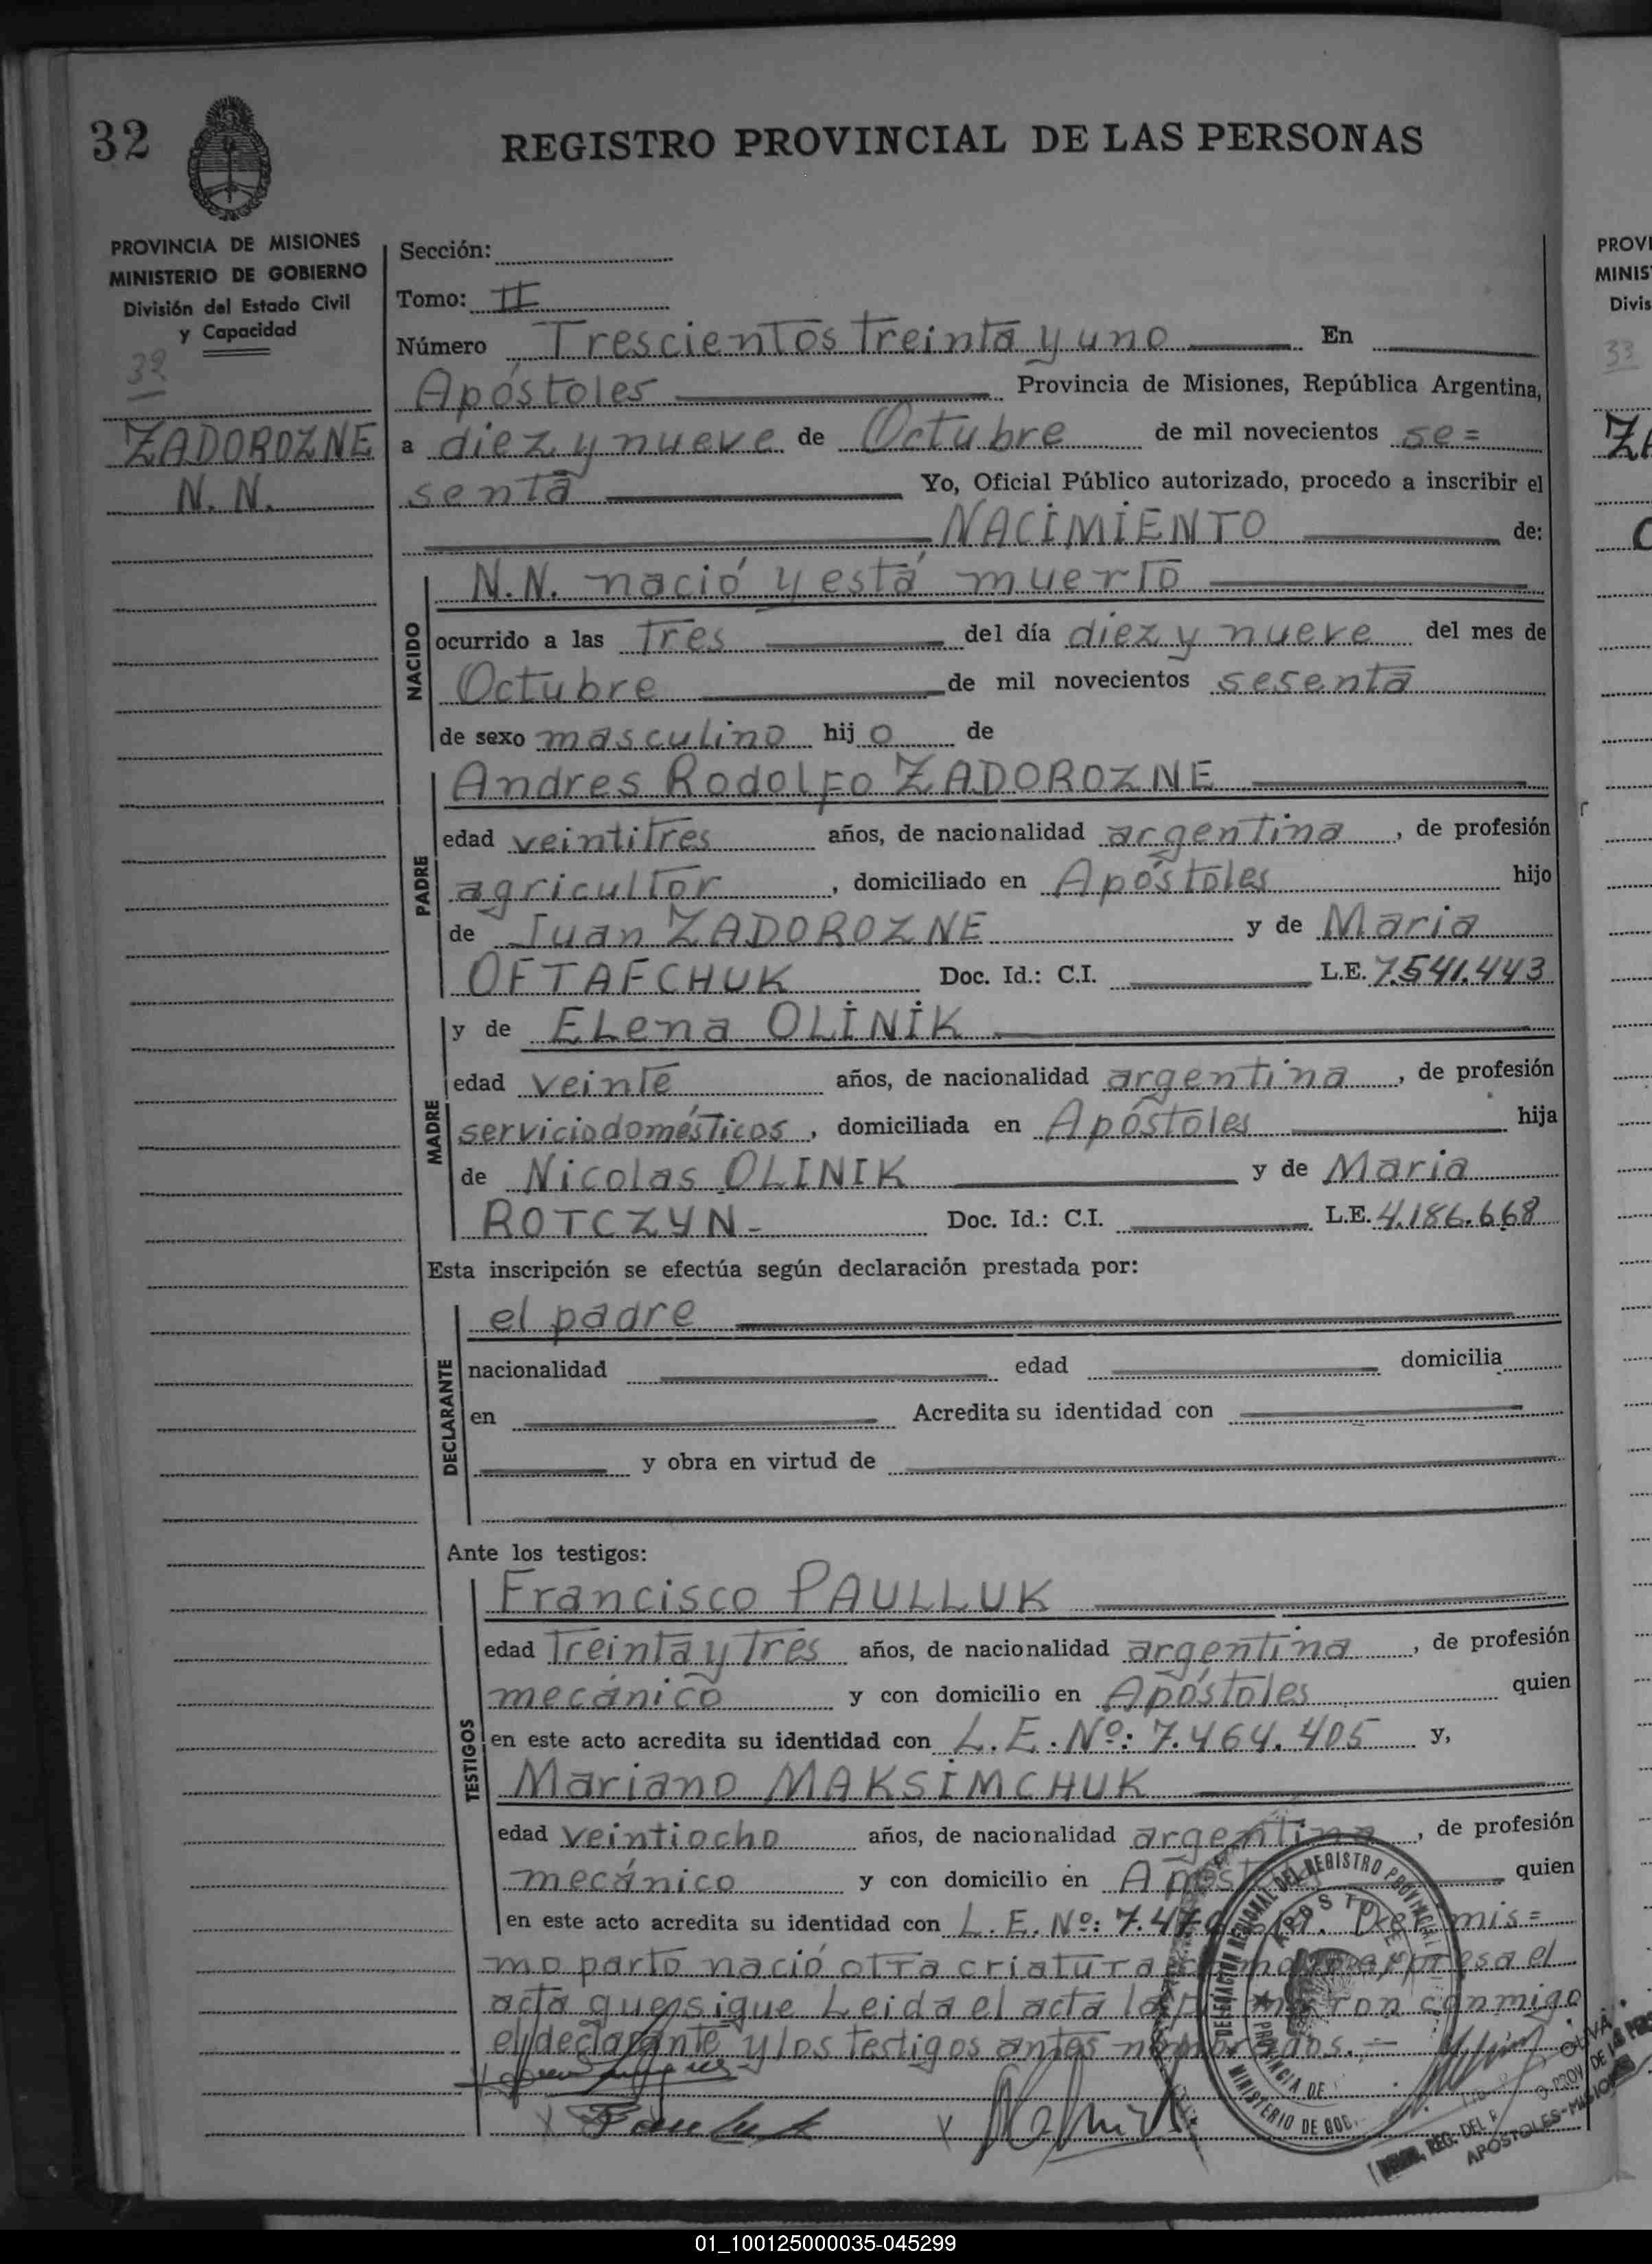 32
REGISTRO PROVINCIAL DE LAS PERSONAS
PROVINCIA DE MISIONES
MINISTERIO DE GOBIERNO
División del Estado Civil
y Capacidad
32
ZADOROZNE
N. N.
Sección:
Tomo: II
Número Trescientos treinta y uno En
Apóstoles Provincia de Misiones, República Argentina,
a diez y nueve de Octubre de mil novecientos se=
senta Yo, Oficial Público autorizado, procedo a inscribir el
NACIMIENTO de:
NACIDO
N.N. nació y está muerto
ocurrido a las Tres del día diez y nueve del mes de
Octubre de mil novecientos sesenta
de sexo masculino hijo de
PADRE
Andres Rodolfo ZADOROZNE
edad veintitres años, de nacionalidad argentina, de profesión
agricultor, domiciliado en Apóstoles hijo
de Juan ZADOROZNE y de Maria
OFTAFCHUK Doc. Id.: C.I. L.E. 7.541.443
MADRE
y de Elena OLINIK
edad veinte años, de nacionalidad argentina, de profesión
servicio domésticos, domiciliada en Apóstoles hija
de Nicolas OLINIK y de Maria
ROTCZYN- Doc. Id.: C.I. L.E. 4.186.668
Esta inscripción se efectúa según declaración prestada por:
DECLARANTE
el padre
nacionalidad edad domicilia
en Acredita su identidad con
y obra en virtud de
Ante los testigos:
TESTIGOS
Francisco PAULLUK
edad treinta y tres años, de nacionalidad argentina, de profesión
mecánico y con domicilio en Apóstoles quien
en este acto acredita su identidad con L.E. Nº: 7.464.405 y,
Mariano MAKSIMCHUK
edad veintiocho años, de nacionalidad argentina, de profesión
mecánico y con domicilio en quien
en este acto acredita su identidad con L.E. Nº: mis=
mo parto nació otra criatura el
acta que sigue Leida el acta conmigo
el declarante y los testigos antes
DELEGACION REGIONAL DEL REGISTRO PROVINCIAL
APOSTOLES
PROVINCIA DE
MINISTERIO DE GOB.
OLIVA
REG. DEL
PROV. DE
APOSTOLES-MISIONES
PROVI
MINIS
Divis
33
ZA
01_100125000035-045299